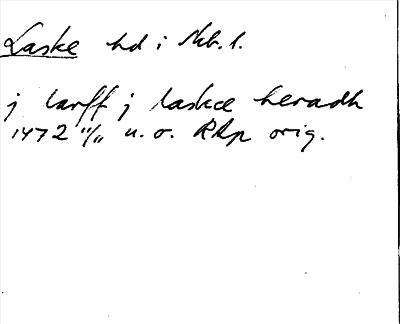 Laske hd i Nkb. l.
j larff j laskæ heradh
1472 11/11 u. o. RAp orig.